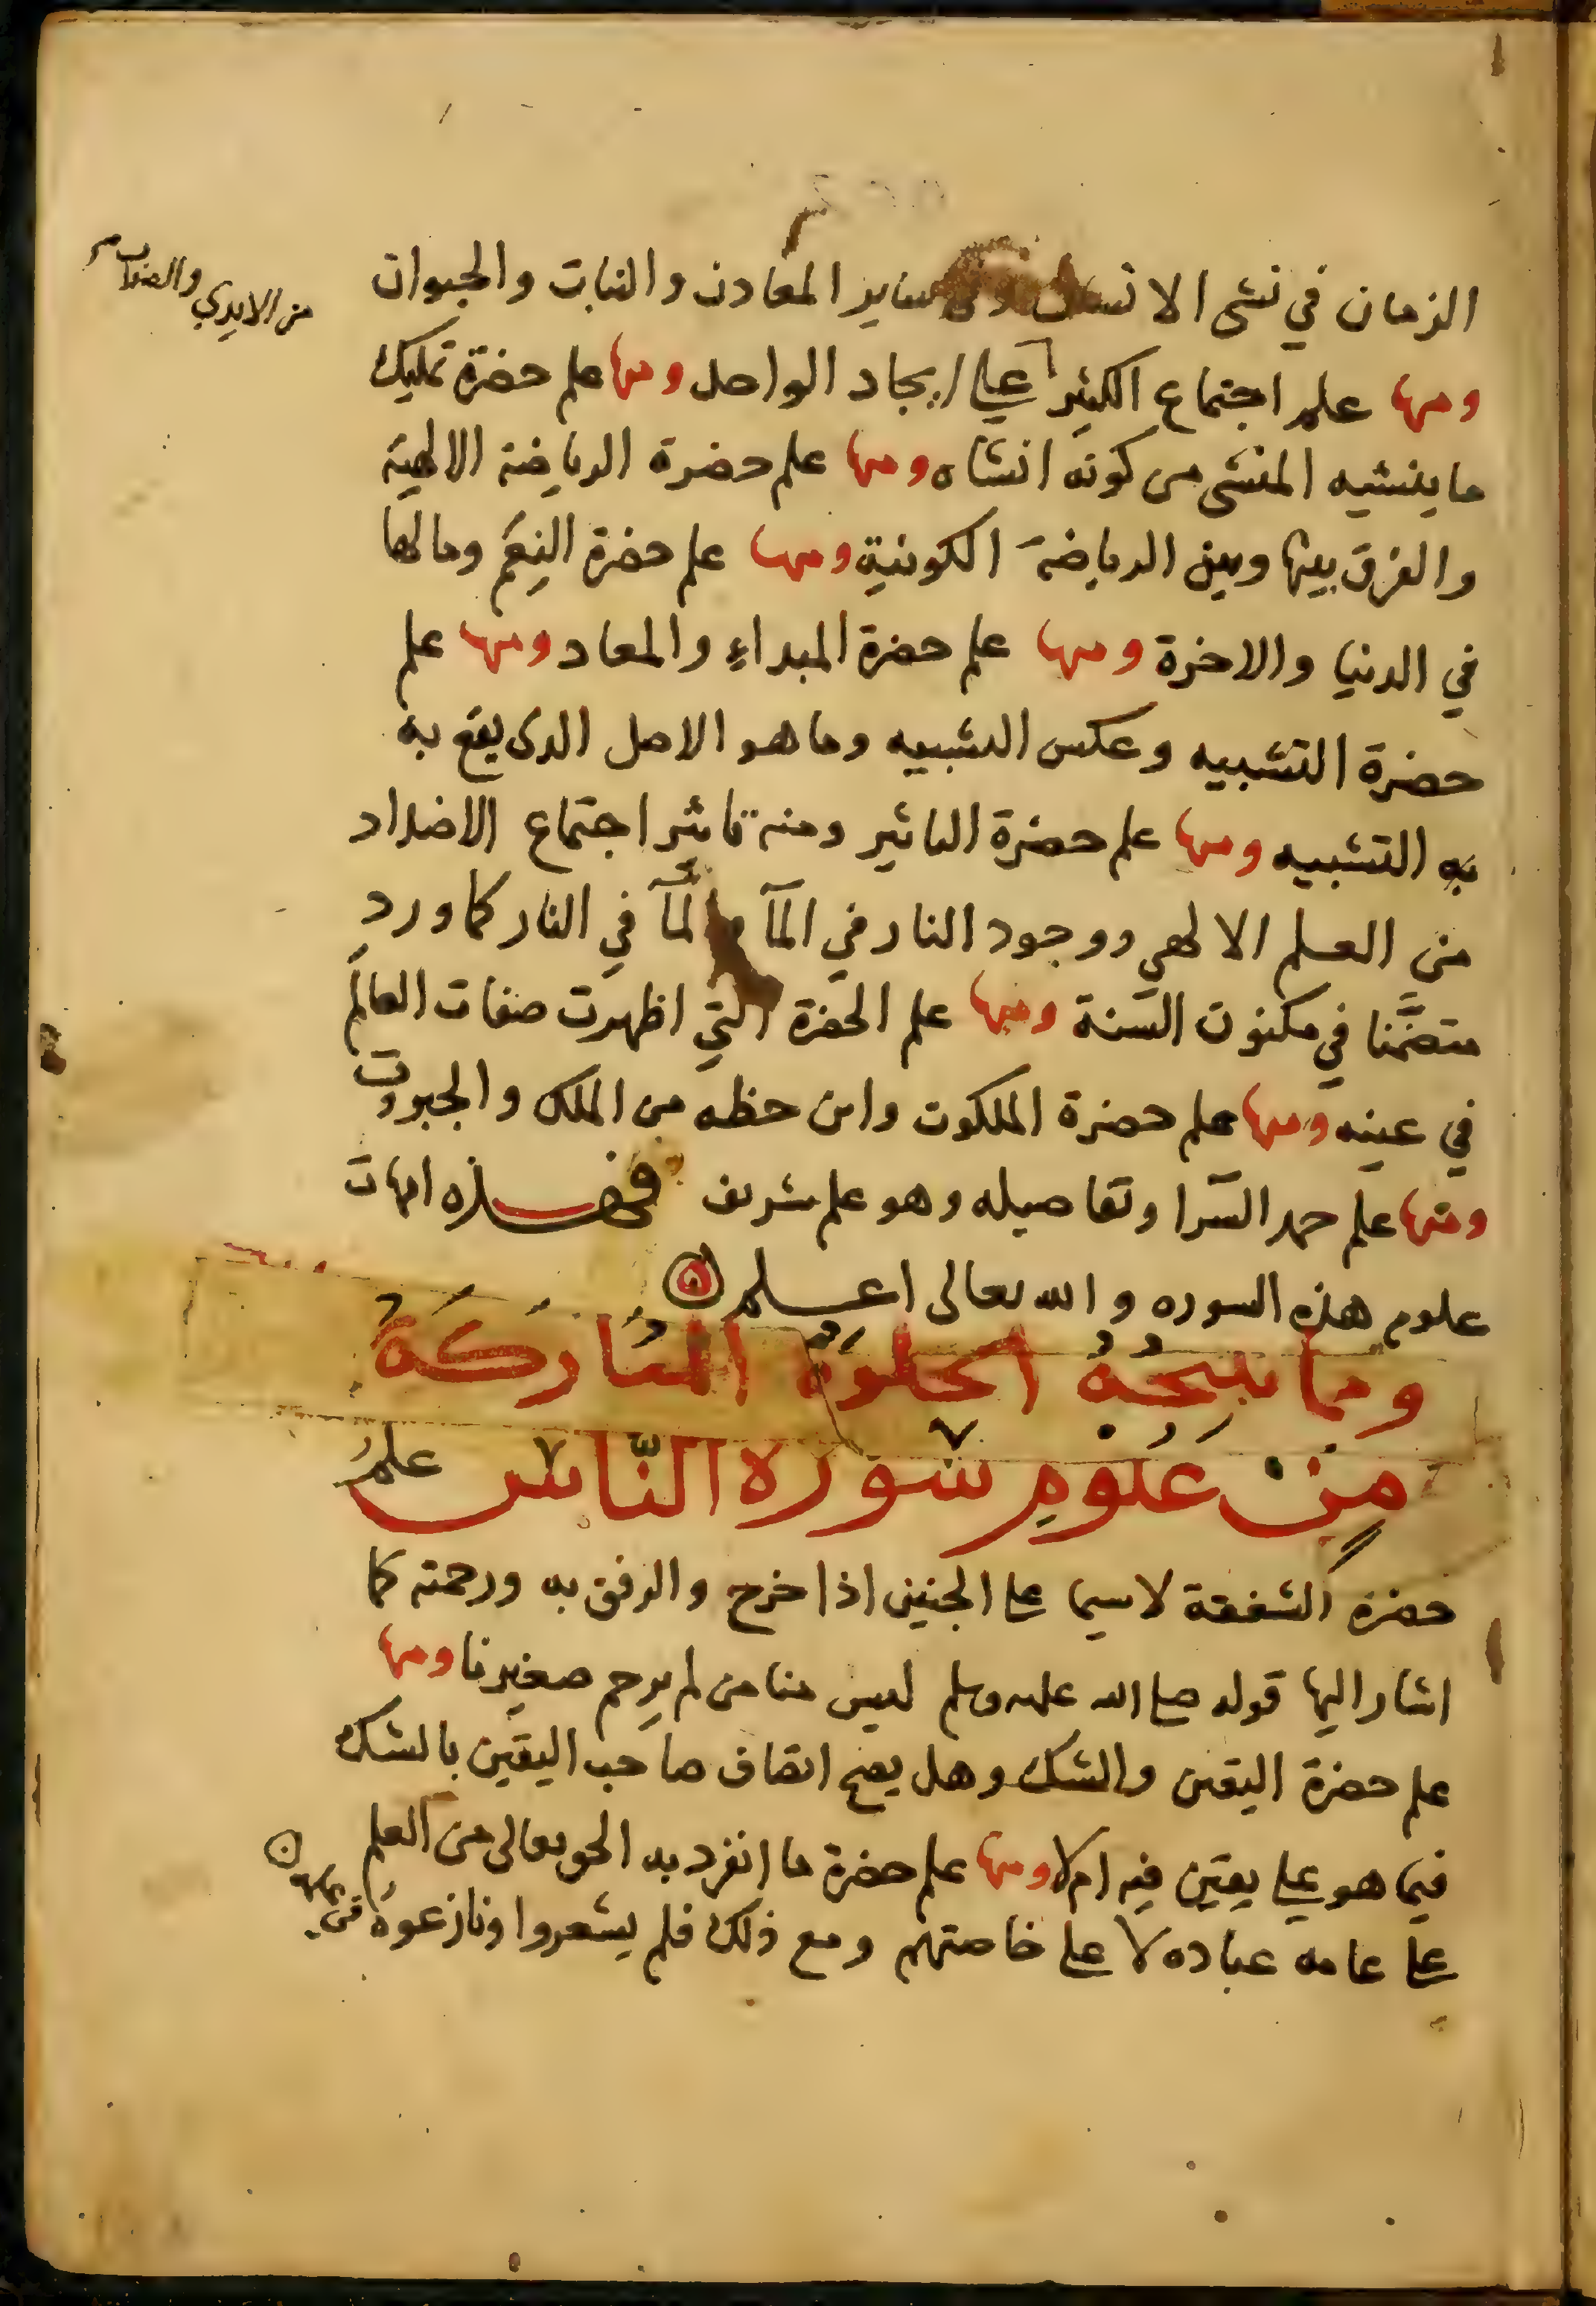 الزمان في نشى الانسان وفي ساير المعادن والنبات والحيوان
من الايدي والصواب
ومنها علم اجتماع الكثير على ايجاد الواحد ومنها علم حضرة تمليك
ما ينشيه المنشى من كونه انشاه ومنها علم حضرة الرياضة الالهية
والفرق بينها وبين الرياضة الكونية ومنها علم حضرة النعم ومالها
في الدنيا والاخرة ومنها علم حضرة المبداء والمعاد ومنها علم
حضرة التشبيه وعكس التشبيه وما هو الاصل الذى يقع به
به التشبيه ومنها علم حضرة التاثير ومنه تاثير اجتماع الاضداد
من العلم الالهي ووجود النار في المآ والمآ في النار كما ورد
متضمَّنا في مكنون السنة ومنها علم الحضرة التي اظهرت صفات العالم
في عينه ومنها علم حضرة الملكوت واين حظه من الملك والجبروت
ومنها علم حمد السرا وتفاصيله وهو علم شريف فهذه امهات
علوم هذه السوره والله تعالى اعلم
ومما تنتجهُ الخلوة المباركة
من علوم سورة النّاس علمُ
حضرة الشفقة لاسيما على الجنين اذا خرج والرفق به ورحمته كما
اشار اليها قوله صلى الله عليه وسلم ليس منا من لم يرحم صغيرنا ومنها
علم حضرة اليقين والشك وهل يصح اتصاف صاحب اليقين بالشك
فيما هو على يقين فيه ام لا ومنها علم حضرة ما انفرد به الحق تعالى من العلم
على عامه عباده لا على خاصتهم ومع ذلك فلم يشعروا ونازعوه فى